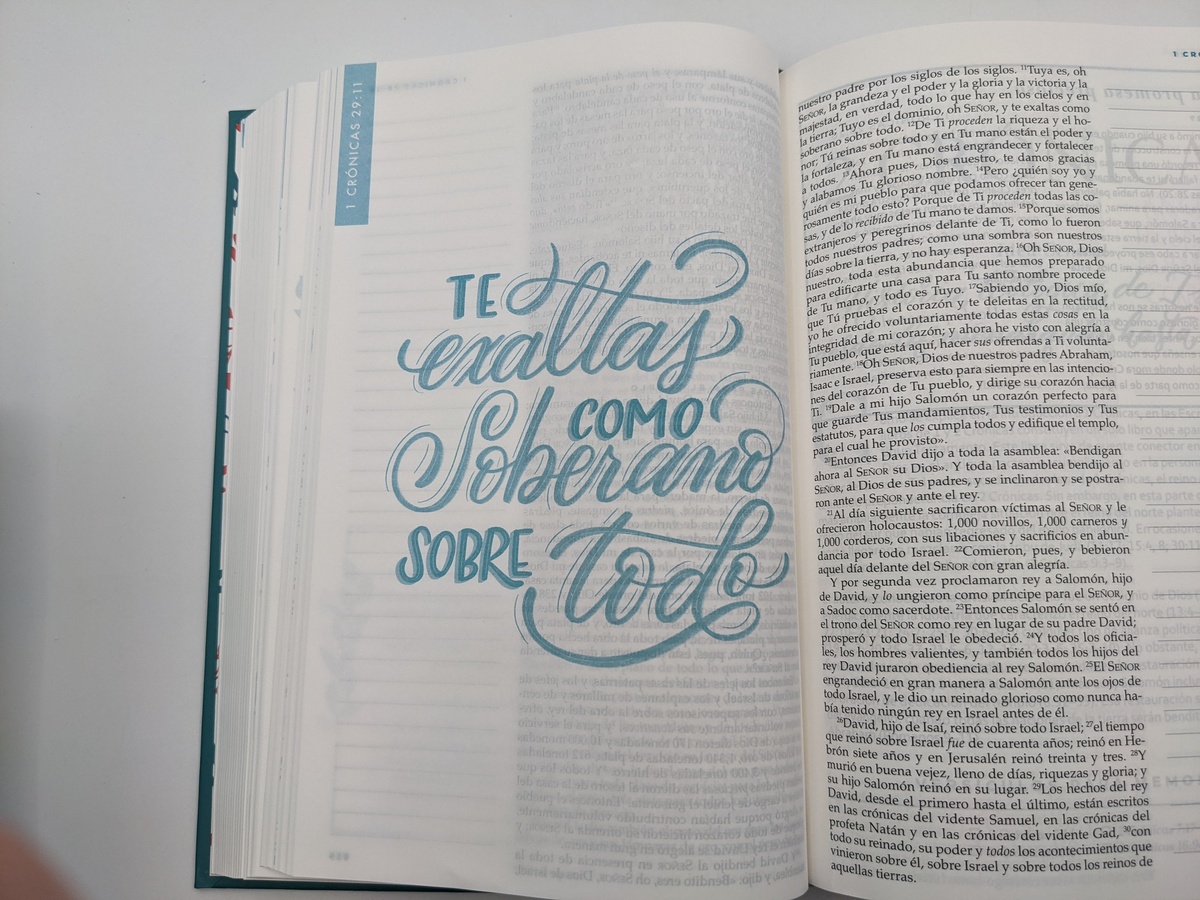 1 CRÓNICAS 29:11
TE
exaltas
COMO
Soberano
SOBRE
todo
1 CRÓ
nuestro padre por los siglos de los siglos. ¹¹Tuya es, oh
SEÑOR, la grandeza y el poder y la gloria y la victoria y la
majestad, en verdad, todo lo que hay en los cielos y en
la tierra; Tuyo es el dominio, oh SEÑOR, y te exaltas como
soberano sobre todo. ¹²De Ti proceden la riqueza y el ho-
nor; Tú reinas sobre todo y en Tu mano están el poder y
la fortaleza, y en Tu mano está engrandecer y fortalecer
a todos. ¹³Ahora pues, Dios nuestro, te damos gracias
y alabamos Tu glorioso nombre. ¹⁴Pero ¿quién soy yo y
quién es mi pueblo para que podamos ofrecer tan gene-
rosamente todo esto? Porque de Ti proceden todas las co-
sas, y de lo recibido de Tu mano te damos. ¹⁵Porque somos
extranjeros y peregrinos delante de Ti, como lo fueron
todos nuestros padres; como una sombra son nuestros
días sobre la tierra, y no hay esperanza. ¹⁶Oh SEÑOR, Dios
nuestro, toda esta abundancia que hemos preparado
para edificarte una casa para Tu santo nombre procede
de Tu mano, y todo es Tuyo. ¹⁷Sabiendo yo, Dios mío,
que Tú pruebas el corazón y te deleitas en la rectitud,
yo he ofrecido voluntariamente todas estas cosas en la
integridad de mi corazón; y ahora he visto con alegría a
Tu pueblo, que está aquí, hacer sus ofrendas a Ti volunta-
riamente. ¹⁸Oh SEÑOR, Dios de nuestros padres Abraham,
Isaac e Israel, preserva esto para siempre en las intencio-
nes del corazón de Tu pueblo, y dirige su corazón hacia
Ti. ¹⁹Dale a mi hijo Salomón un corazón perfecto para
que guarde Tus mandamientos, Tus testimonios y Tus
estatutos, para que los cumpla todos y edifique el templo,
para el cual he provisto».
²⁰Entonces David dijo a toda la asamblea: «Bendigan
ahora al SEÑOR su Dios». Y toda la asamblea bendijo al
SEÑOR, al Dios de sus padres, y se inclinaron y se postra-
ron ante el SEÑOR y ante el rey.
²¹Al día siguiente sacrificaron víctimas al SEÑOR y le
ofrecieron holocaustos: 1,000 novillos, 1,000 carneros y
1,000 corderos, con sus libaciones y sacrificios en abun-
dancia por todo Israel. ²²Comieron, pues, y bebieron
aquel día delante del SEÑOR con gran alegría.
Y por segunda vez proclamaron rey a Salomón, hijo
de David, y lo ungieron como príncipe para el SEÑOR, y
a Sadoc como sacerdote. ²³Entonces Salomón se sentó en
el trono del SEÑOR como rey en lugar de su padre David;
prosperó y todo Israel le obedeció. ²⁴Y todos los oficia-
les, los hombres valientes, y también todos los hijos del
rey David juraron obediencia al rey Salomón. ²⁵El SEÑOR
engrandeció en gran manera a Salomón ante los ojos de
todo Israel, y le dio un reinado glorioso como nunca ha-
bía tenido ningún rey en Israel antes de él.
²⁶David, hijo de Isaí, reinó sobre todo Israel; ²⁷el tiempo
que reinó sobre Israel fue de cuarenta años; reinó en He-
brón siete años y en Jerusalén reinó treinta y tres. ²⁸Y
murió en buena vejez, lleno de días, riquezas y gloria; y
su hijo Salomón reinó en su lugar. ²⁹Los hechos del rey
David, desde el primero hasta el último, están escritos
en las crónicas del vidente Samuel, en las crónicas del
profeta Natán y en las crónicas del vidente Gad, ³⁰con
todo su reinado, su poder y todos los acontecimientos que
vinieron sobre él, sobre Israel y sobre todos los reinos de
aquellas tierras.